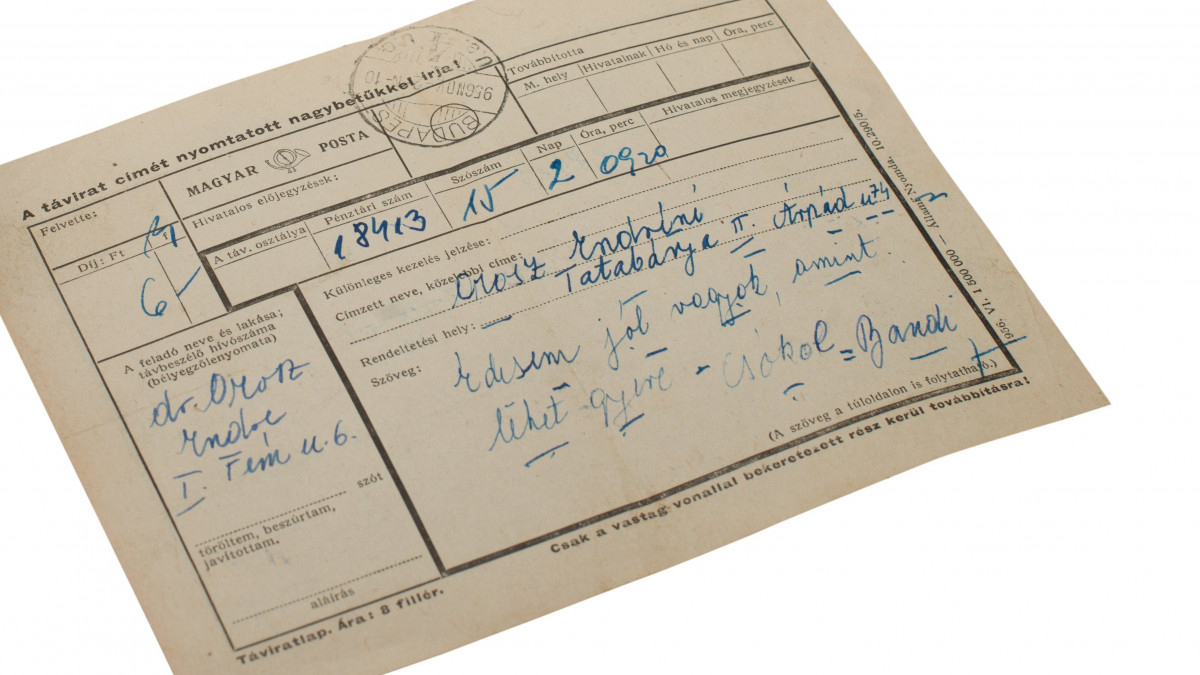 A távirat címét nyomtatott nagybetűkkel írja!
BUDAPES
956NOV
Továbbította
M. hely Hivatalnak Hó és nap Óra, perc
Felvette:
MAGYAR POSTA
Hivatalos előjegyzések:
Hivatalos megjegyzések
Díj: Ft
6-
A táv. osztálya Pénztári szám Szószám Nap Óra, perc
18413 15 2 0920
Különleges kezelés jelzése:
Címzett neve, közelebbi címe: Orosz Endréné
Tatabánya II. Árpád u 74
Rendeltetési hely:
Szöveg:
Édesem jól vagyok, amint
lehet gyere - Csókol = Bandi
A feladó neve és lakása;
távbeszélő hívószáma
(bélyegzőlenyomata)
dr. Orosz
Endre
I. Fém u. 6.
szót
töröltem, beszúrtam,
javítottam.
aláírás
(A szöveg a túloldalon is folytatható.)
Csak a vastag vonallal bekeretezett rész kerül továbbításra!
Táviratlap. Ára: 8 fillér.
1956. VI. 1 500 000 — Állami Nyomda. 10.290/5.